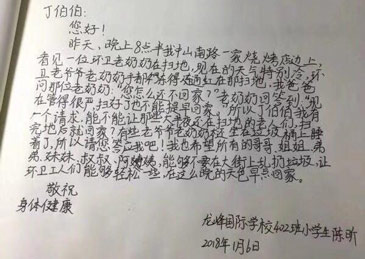 丁伯伯:
您好!
昨天、晚上8点半我中山南路一家烧烤店边上,
看见一位环卫老奶奶在扫地,现在的天气特别冷,环
卫老爷爷老奶奶手都冻得通红在那扫地,我爸爸
问那位老奶奶:“您怎么还不回家?”老奶奶回答到“现
在管得很严,扫好了也不能提早回家。”所以丁伯伯我有
一个请求,能不能让那些大半夜还在扫地的老人
完地后就回家?有些老爷爷老奶奶坐在垃圾桶上睡
着了,所以请您答应我吧!我也希望所有的哥哥、姐姐、弟
弟、妹妹、叔叔、阿姨,能够不要在大街上乱扔垃圾,让
环卫工人们能够轻松一些,在这么晚的天色早点回家。
敬祝
身体健康
龙峰国际学校402班小学生陈昕
2018年1月6日